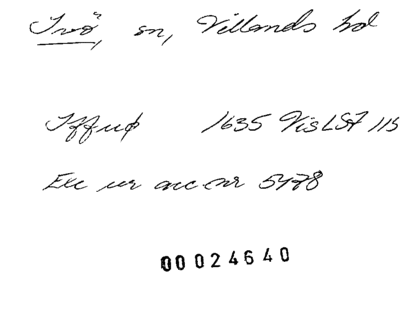 Ivö, sn, Villands hd
Iffuö 1635 VisLSt 115
Exc ur acc-nr 5478
00024640